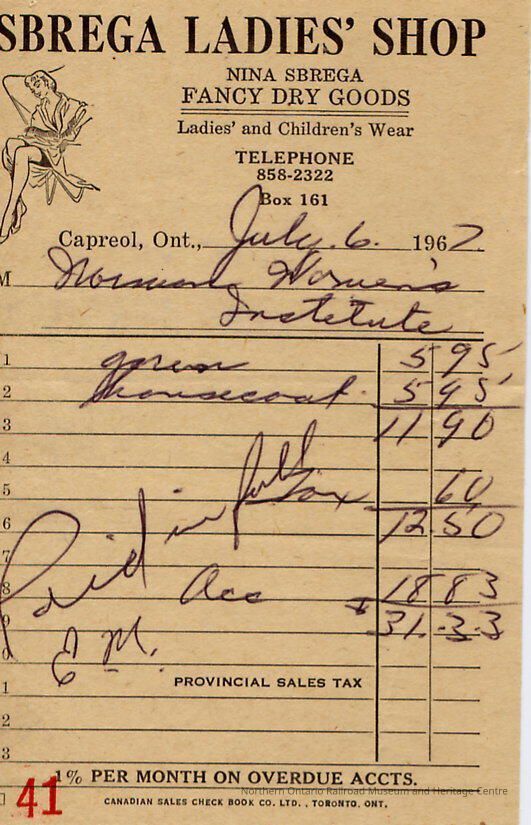 SBREGA LADIES' SHOP
NINA SBREGA
FANCY DRY GOODS
Ladies' and Children's Wear
TELEPHONE
858-2322
Box 161
Capreol, Ont., July 6. 1967
M Women's
Institute
1 5 95
2 housecoat 5 95
3 11 90
4
5 Tax 60
6 12.50
7 Paid in full
8 Acc 18 83
9 31.33
0 E M.
PROVINCIAL SALES TAX
1
2
3
1% PER MONTH ON OVERDUE ACCTS.
Northern Ontario Railroad Museum and Heritage Centre
41 CANADIAN SALES CHECK BOOK CO. LTD., TORONTO, ONT.